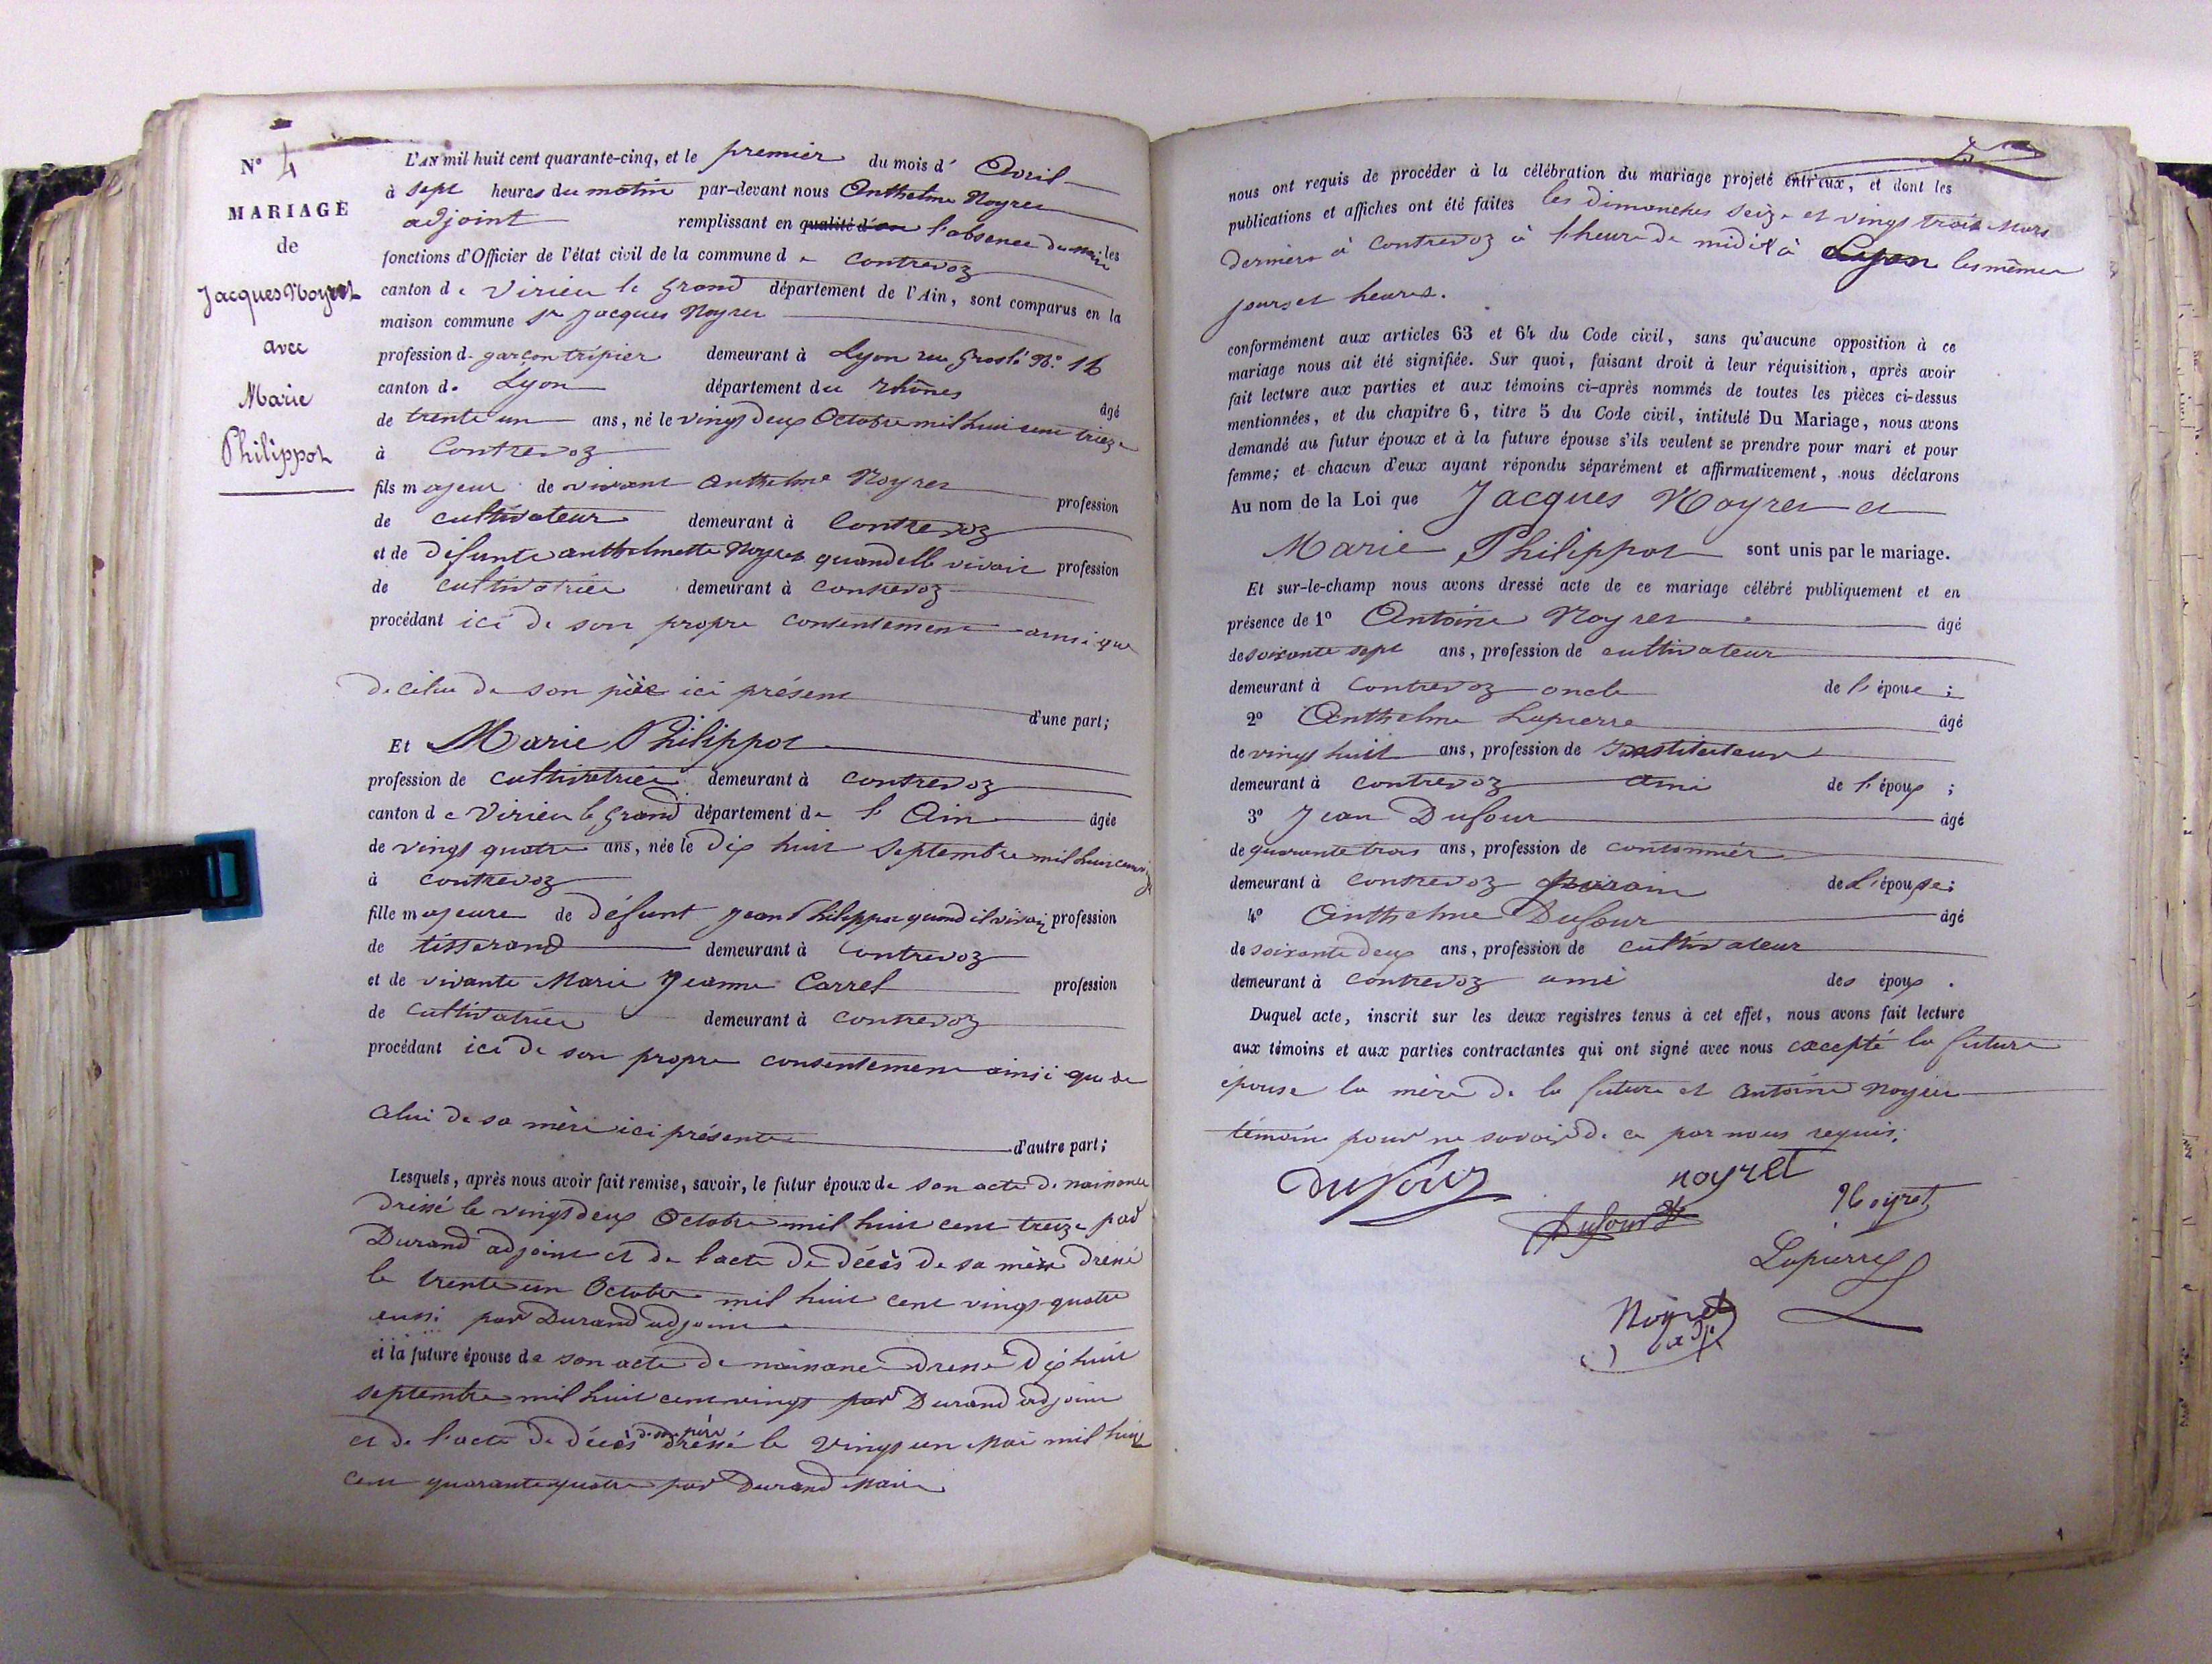 N° 4
MARIAGE
de
Jacques Noyret
avec
Marie
Philippot
L'AN mil huit cent quarante-cinq, et le premier du mois d' Avril
à sept heures du matin par-devant nous Anthelme Noyret
adjoint remplissant en qualité d'un l'absence du maire les
fonctions d'Officier de l'état civil de la commune d e Contrevoz
canton d e Virieu le grand département de l'Ain, sont comparus en la
maison commune Sr Jacques Noyret
profession d. garçon tripier demeurant à Lyon rue Grolée No. 16
canton d. Lyon département du Rhône
de trente un ans, né le vingt deux Octobre mil huit cent treize âgé
à Contrevoz
fils majeur de vivant Anthelme Noyret profession
de cultivateur demeurant à Contrevoz
et de défunte anthelmette Noyret quand elle vivait profession
de cultivatrice demeurant à Contrevoz
procédant ici de son propre consentement ainsi que
de celui de son père ici présent d'une part;
Et Marie Philippot
profession de cultivatrice demeurant à Contrevoz
canton d e Virieu le Grand département de l'Ain âgée
de vingt quatre ans, née le dix huit Septembre mil huit cent
à Contrevoz
fille majeure de défunt Jean Philippot quand il vivait profession
de tisserand demeurant à Contrevoz
et de vivante Marie Jeanne Carrel profession
de Cultivatrice demeurant à Contrevoz
procédant ici de son propre consentement ainsi que de
celui de sa mère ici présente d'autre part;
Lesquels, après nous avoir fait remise, savoir, le futur époux de son acte de naissance
dressé le vingt deux Octobre mil huit cent treize par
Durand adjoint et de l'acte de décès de sa mère dressé
le trente un Octobre mil huit cent vingt-quatre
aussi par Durand adjoint
et la future épouse de son acte de naissance dressé dix huit
septembre mil huit cent vingt par Durand adjoint
et de l'acte de décès de son père dressé le vingt un Mai mil huit
cent quarante quatre par Durand Maire
nous ont requis de procéder à la célébration du mariage projeté entr'eux, et dont les
publications et affiches ont été faites les Dimanches seize et vingt trois Mars
derniers à Contrevoz à l'heure de midi et à Lyon les mêmes
jours et heures.
conformément aux articles 63 et 64 du Code civil, sans qu'aucune opposition à ce
mariage nous ait été signifiée. Sur quoi, faisant droit à leur réquisition, après avoir
fait lecture aux parties et aux témoins ci-après nommés de toutes les pièces ci-dessus
mentionnées, et du chapitre 6, titre 5 du Code civil, intitulé Du Mariage, nous avons
demandé au futur époux et à la future épouse s'ils veulent se prendre pour mari et pour
femme; et chacun d'eux ayant répondu séparément et affirmativement, nous déclarons
Au nom de la Loi que Jacques Noyret et
Marie Philippot sont unis par le mariage.
Et sur-le-champ nous avons dressé acte de ce mariage célébré publiquement et en
présence de 1° Antoine Noyret âgé
de soixante sept ans, profession de cultivateur
demeurant à Contrevoz oncle de l'époux;
2° Anthelme Lapierre âgé
de vingt huit ans, profession de Instituteur
demeurant à Contrevoz ami de l'époux;
3° Jean Dufour âgé
de quarante trois ans, profession de cantonnier
demeurant à Contrevoz parain de l'épouse;
4° Anthelme Dufour âgé
de soixante deux ans, profession de cultivateur
demeurant à Contrevoz ami des époux.
Duquel acte, inscrit sur les deux registres tenus à cet effet, nous avons fait lecture
aux témoins et aux parties contractantes qui ont signé avec nous excepté la future
épouse la mère de la future et Antoine Noyret
témoin pour ne savoir de ce par nous requis.
Dufour noyret
Dufour Noyret
Lapierre
Noyret
adj.